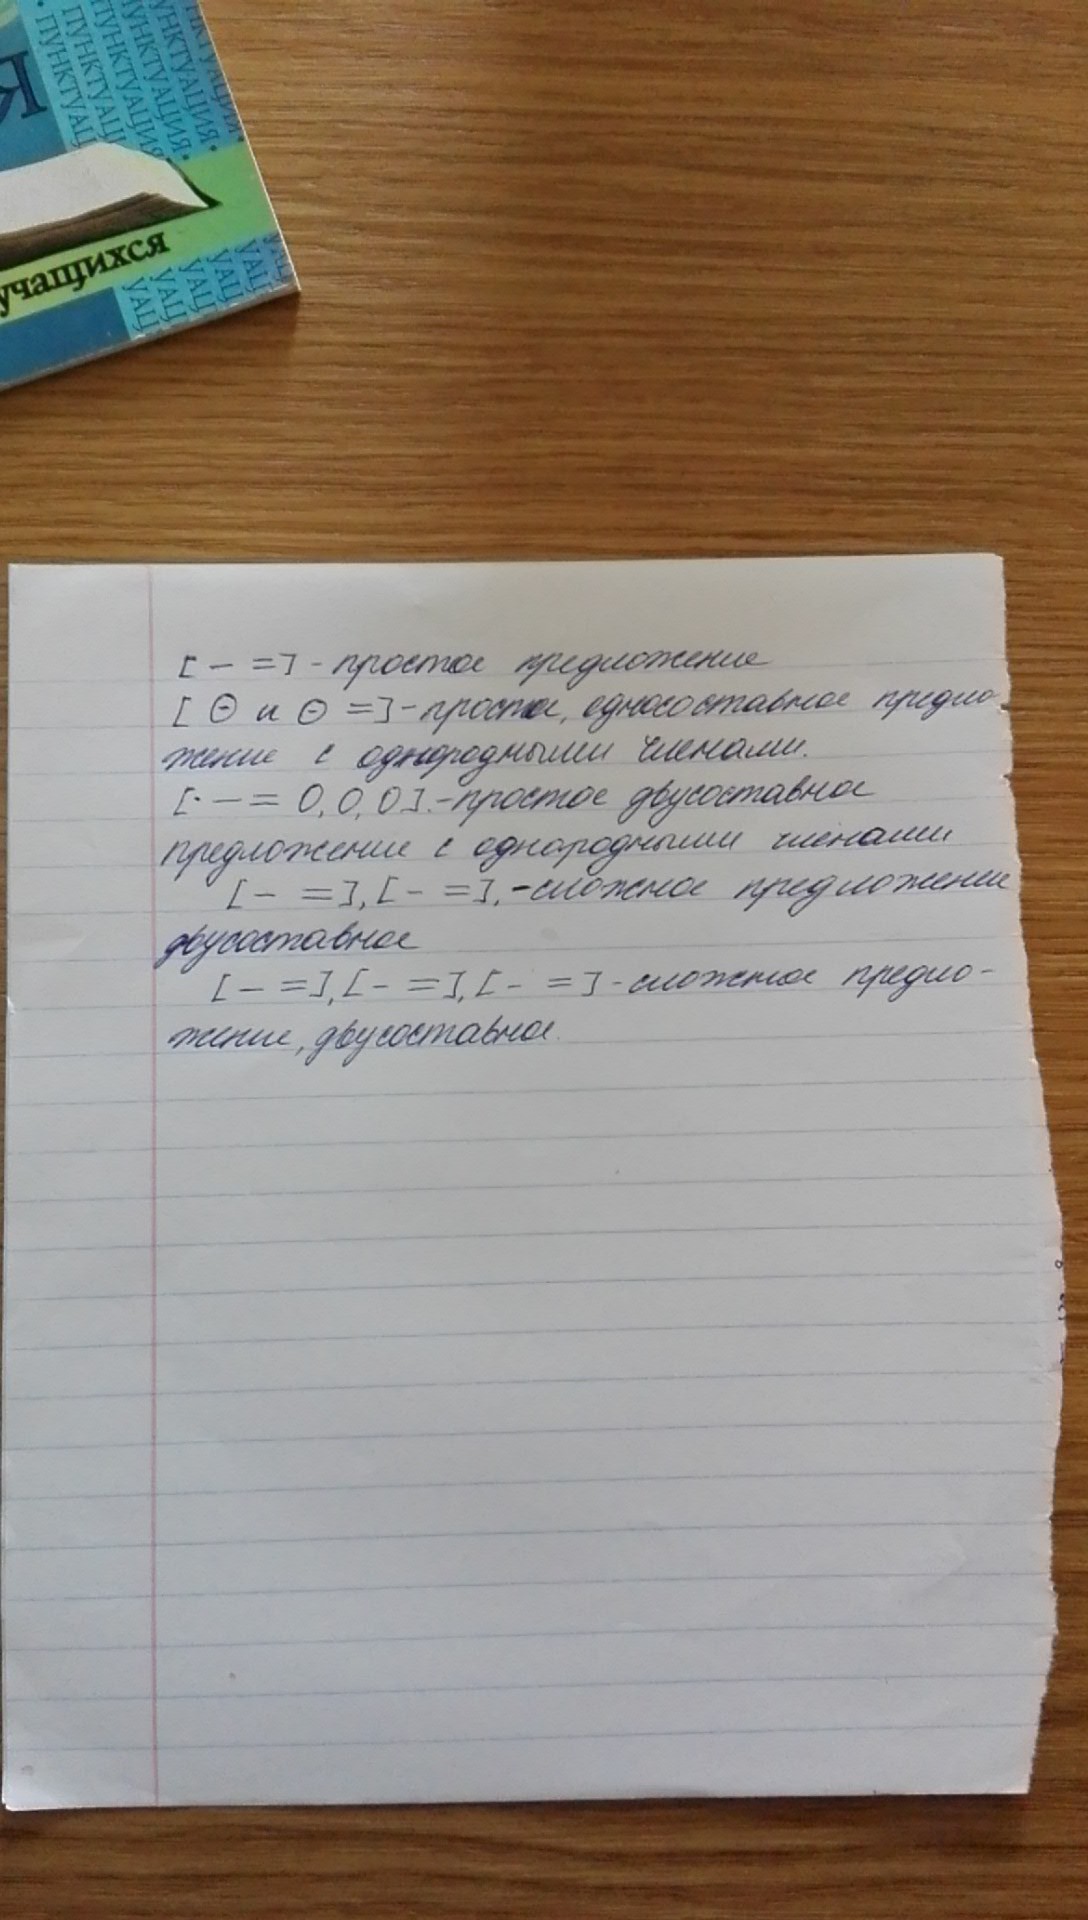 Я
ПУНКТУАЦИЯ
учащихся
[ — = ] - простое предложение
[ ⊖ и ⊖ = ] - простое, односоставное предло-
жение с однородными членами.
[· — = О, О, О ]. - простое двусоставное
предложение с однородными членами
[ - = ], [ - = ], - сложное предложение
двусоставное
[ — = ], [ - = ], [ - = ] - сложное предло-
жение, двусоставное.